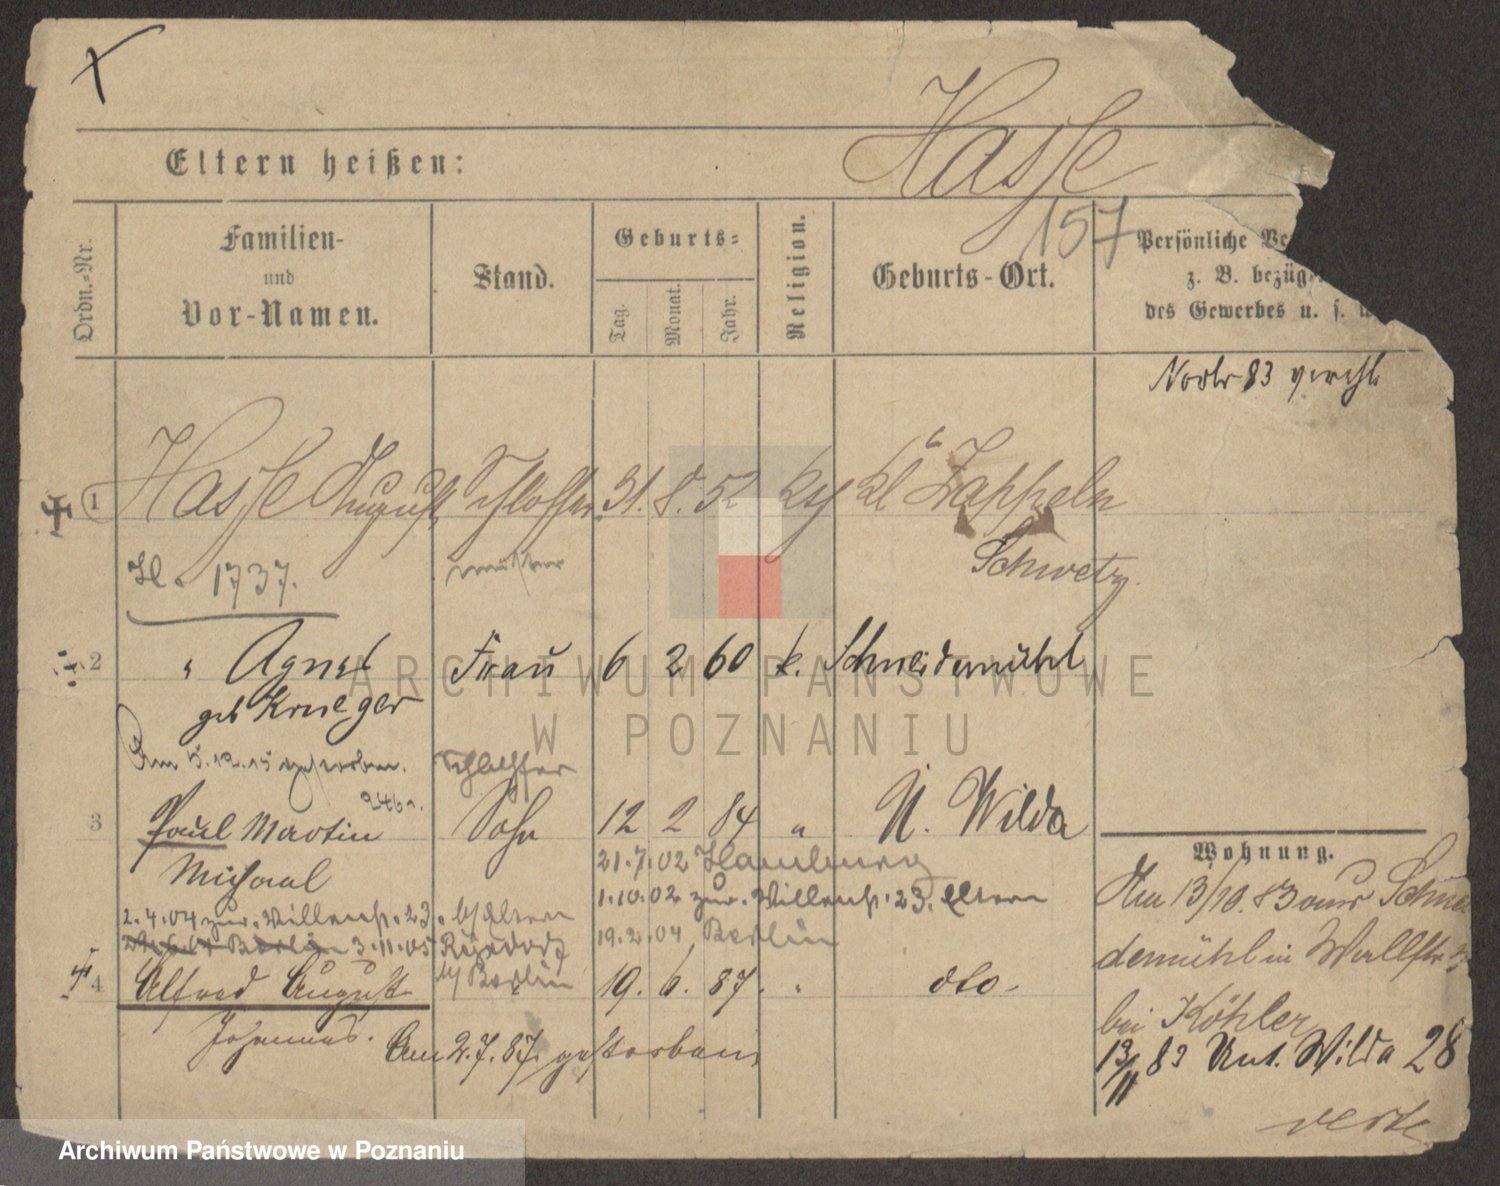 Hasse
Eltern heißen:
157
Ordn.-Nr.
Familien-
und
Vor-Namen.
Stand.
Geburts-
Tag.
Monat.
Jahr.
Religion.
Geburts-Ort.
Persönliche Ve
z. B. bezüg
des Gewerbes u. s. w
Novbr 83 verehl
1 Hasse August Schlosser 31. 8. 52 Kl Zappeln
Schwetz.
1737.
2 " Agnes Frau 6 2 60 k. Schneidemühl
geb Krueger
Am 5.12.15 gestorben.
Schlosser
3 Paul Martin Sohn 12 2 84 " U. Wilda
Michael
21.7.02 Hamburg
1.10.02 zur. Willenstr. 23. Eltern
2.4.04 zur. Willenstr. 23. b/ Eltern
19.2.04 Berlin
Berlin 3.11.05 Rixdorf
b/ Berlin
4 Alfred August 19. 6. 87. " dto.
Johannes.
Am 2.7.87. gestorben
Wohnung.
Am 13/10. 83 aus Schnei
demühl in Wallstr.
bei Köhler
13/11 83 Unt. Wilda 28
verte
ARCHIWUM PAŃSTWOWE
W POZNANIU
Archiwum Państwowe w Poznaniu